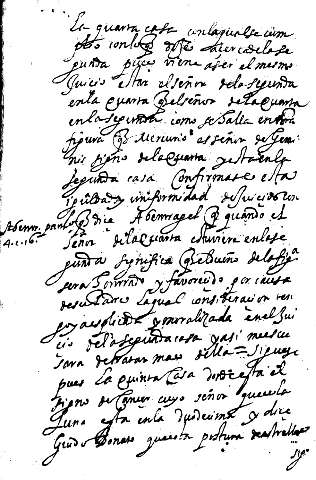 La quarta casa con la qual se cum
plio con lo q dixe acerca de la se
gunda pues viene a ser el mesmo
Juicio estar el señor de la segunda
en la quarta q el señor de la quarta
en la segunda como se halla en esta
figura q Mercurio es señor de Gemi
nis signo de la quarta y esta en la
segunda casa Confirmase esta
y uniformidad de Juicio con
q dice Abenragel q quando el
Aben. part
4. c. 16.
Señor de la quarta estuviere en la se
gunda significa q el dueño de la figu
ra sera honrrado y favorecido por causa
de sus Padres la qual consideracion ten
go ya esplicada y moralizada en el Jui
cio de la segunda casa y asi me escu
sara de tratar mas della = Siguese
pues la quinta Casa donde esta el
signo de Cancer cuyo señor que es la
Luna esta en la duodecima y dice
Guido Bonato que esta postura de estrellas
sig